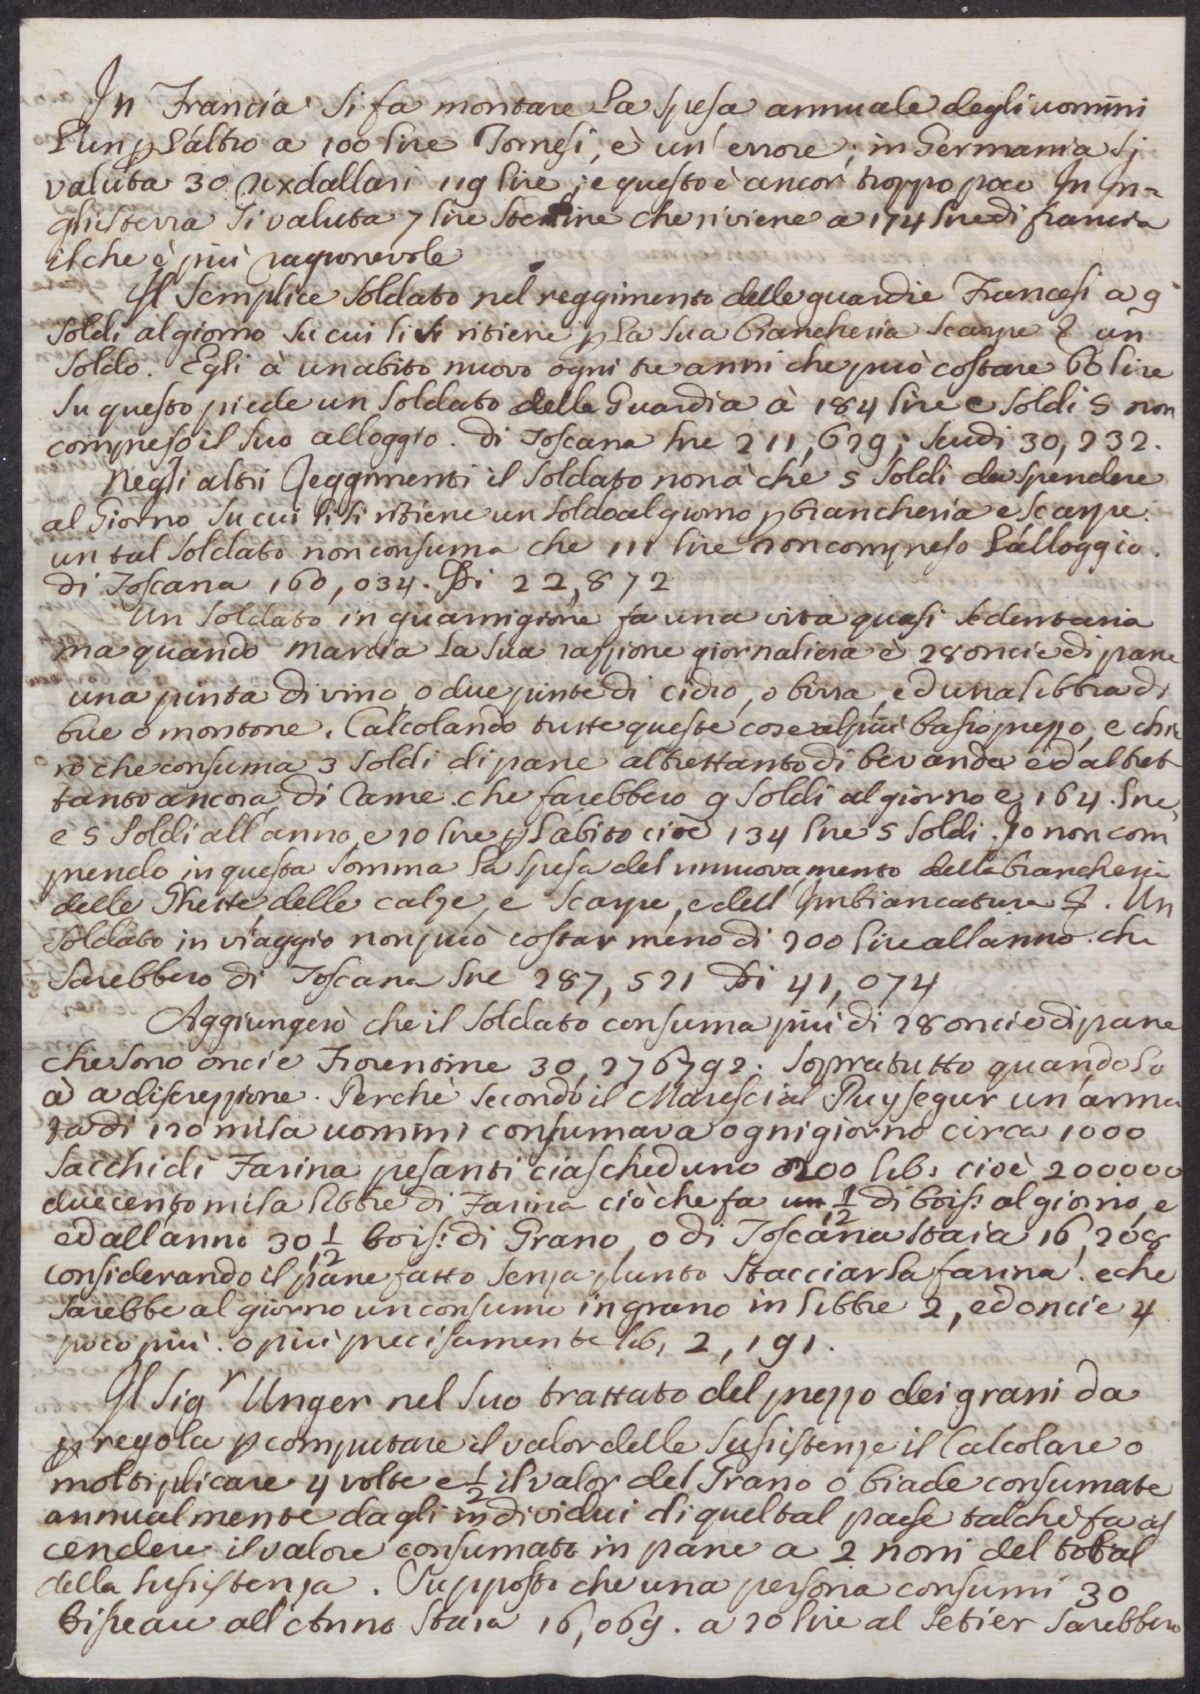 In Francia si fa montare la spesa annuale degli uomini
l'un p l'altro a 100 lire Tornesi, è un' errore; in Germania si
valuta 30 rixdallari 119 lire, e questo è ancor troppo poco In In=
ghilterra si valuta 7 lire sterline che riviene a 174 lire di francia
il che è più ragionevole
Il semplice soldato nel reggimento delle guardie Francesi a 9
soldi al giorno su cui li si ritiene p la sua biancheria scarpe & un
soldo. Egli à un abito nuovo ogni tre anni che può costare 60 lire
su questo piede un soldato delle Guardia à 184 lire e soldi 5 non
compreso il suo alloggio. di Toscana lire 211,629; scudi 30,232.
Negli altri reggimenti il soldato non à che 5 soldi da spendere
al Giorno su cui li si ritiene un soldo al giorno p biancheria e scarpe.
un tal soldato non consuma che 111 lire non compreso l'alloggio.
di Toscana 160,034. Di 22,872
Un soldato in guarnigione fa una vita quasi sedentaria
ma quando marcia la sua razzione giornaliera è 28 oncie di pane
una pinta di vino, o due pinte di cidro, o birra, ed una libbra di
bue o montone. Calcolando tutte queste cose al più basso prezzo, e
ro che consuma 3 soldi di pane altrettanto di bevanda ed altret
tanto ancora di Carne che farebbero 9 soldi al giorno e 164. lire
e 5 soldi all'anno, e 20 lire p l'abito cioè 134 lire 5 soldi. Io non com
prendo in questa somma la spesa del rinnuovamento della biancheria
delle Ghette, delle calze, e scarpe, e dell' Imbiancatura &. Un
soldato in viaggio non può costar meno di 200 lire all anno. che
sarebbero di Toscana lire 287,521 Di 41,074
Aggiungerò che il soldato consuma più di 28 oncie di pane
che sono oncie Fiorentine 30,276792. sopratutto quando lo
à a discrezzione. Perchè secondo il Marescial Puysegur un'arma
ta di 120 mila uomini consumava ogni giorno circa 1000
sacchi di Farina pesanti ciascheduno 200 lib. cioè 200000
duecento mila libbre di Farina ciò che fa 1/12 di bois: al giorno, e
ed all anno 30 1/12 bois: di Grano, o di Toscana staia 16,208
considerando il pane fatto senza punto stacciar la farina. e che
sarebbe al giorno un consumo in grano in libbre 2, ed oncie 4
poco più. o più precisamente lib. 2,191.
Il Sigr Unger nel suo trattato del prezzo dei grani da
p regola p computare il valor delle sussistenze il Calcolare o
moltiplicare 4 volte e 1/2 il valor del Grano o biade consumate
annualmente dagli individui di quel tal paese talchè fa as
cendere il valore consumato in pane a 2 noni del total
della sussistenza. Supposto che una persona consumi 30
bisseau all'Anno staia 16,069. a 20 lire al setier sarebbero